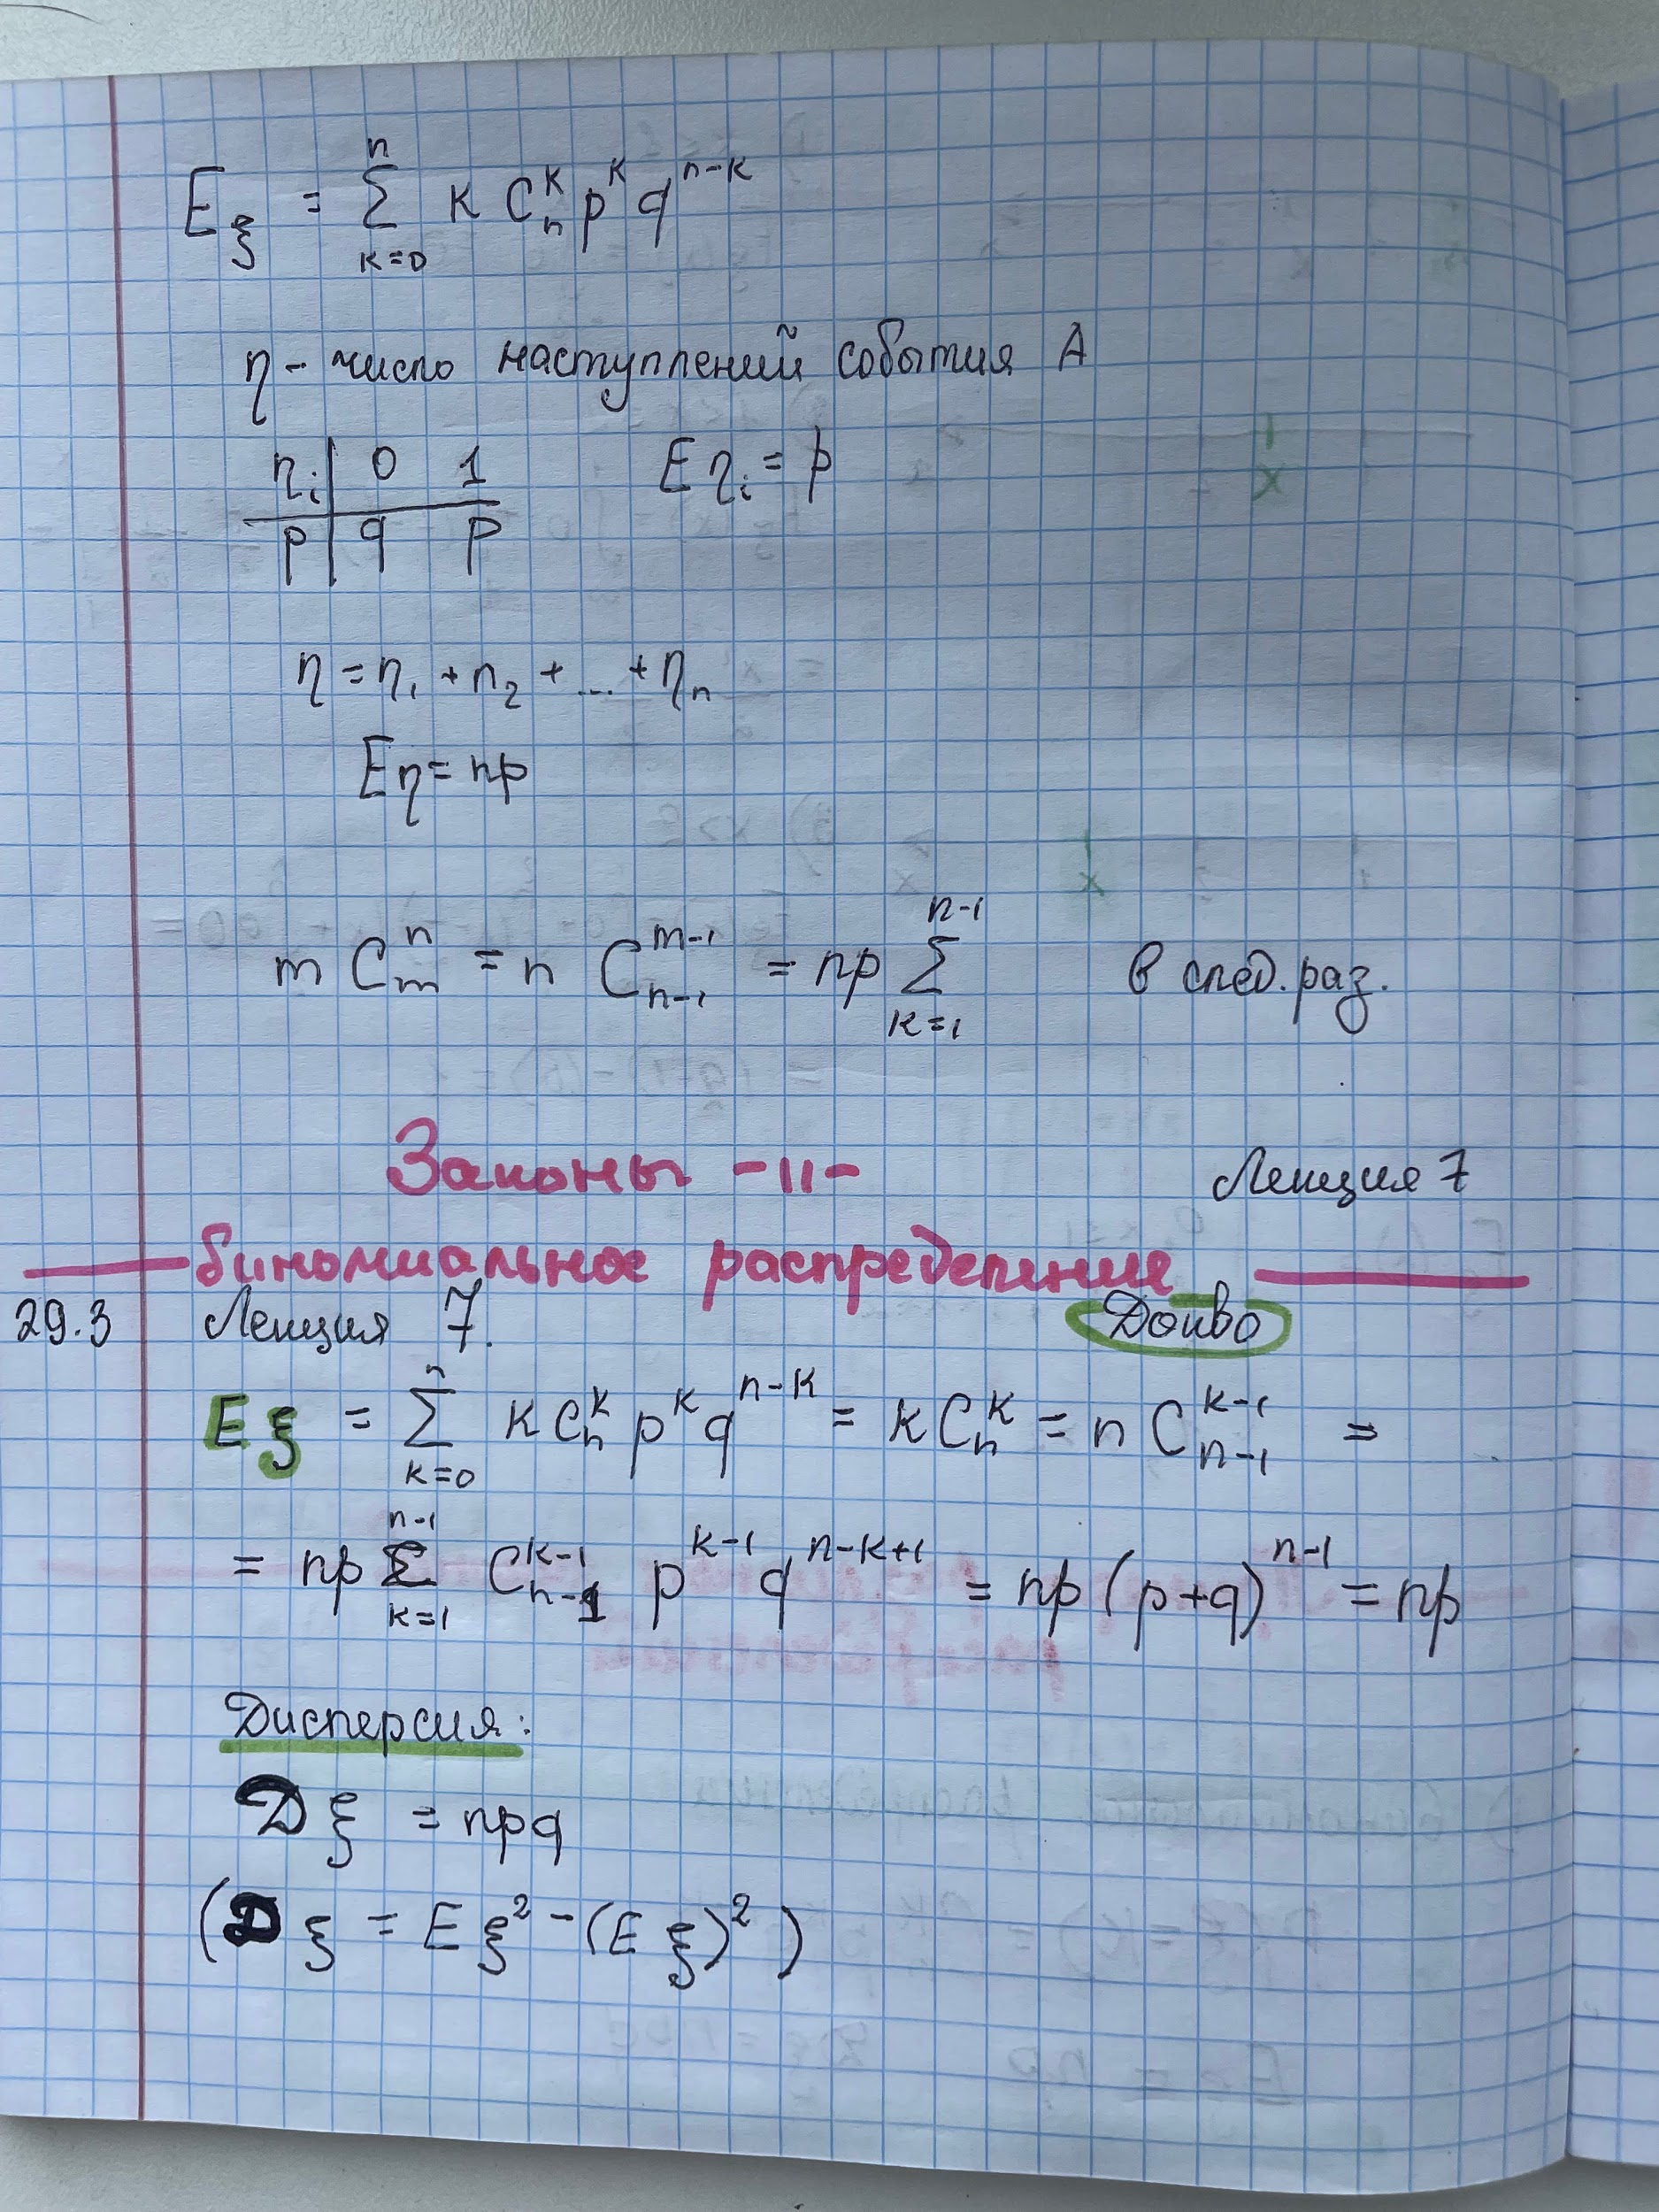 Eξ = ∑_{k=0}^{n} k C_n^k p^k q^{n-k}
η - число наступлений события A
η_i | 0 1
p | q p
Eη_i = p
η = η_1 + η_2 + ... + η_n
Eη = np
m C_m^n = n C_{n-1}^{m-1} = np ∑_{k=1}^{n-1} в след. раз.
Законы -||-
Лекция 7
биномиальное распределение
29.3 Лекция 7.
Док-во
Eξ = ∑_{k=0}^{n} k C_n^k p^k q^{n-k} = k C_n^k = n C_{n-1}^{k-1} =
= np ∑_{k=1}^{n-1} C_{n-1}^{k-1} p^{k-1} q^{n-k+1} = np (p+q)^{n-1} = np
Дисперсия:
Dξ = npq
(Dξ = Eξ^2 - (Eξ)^2)